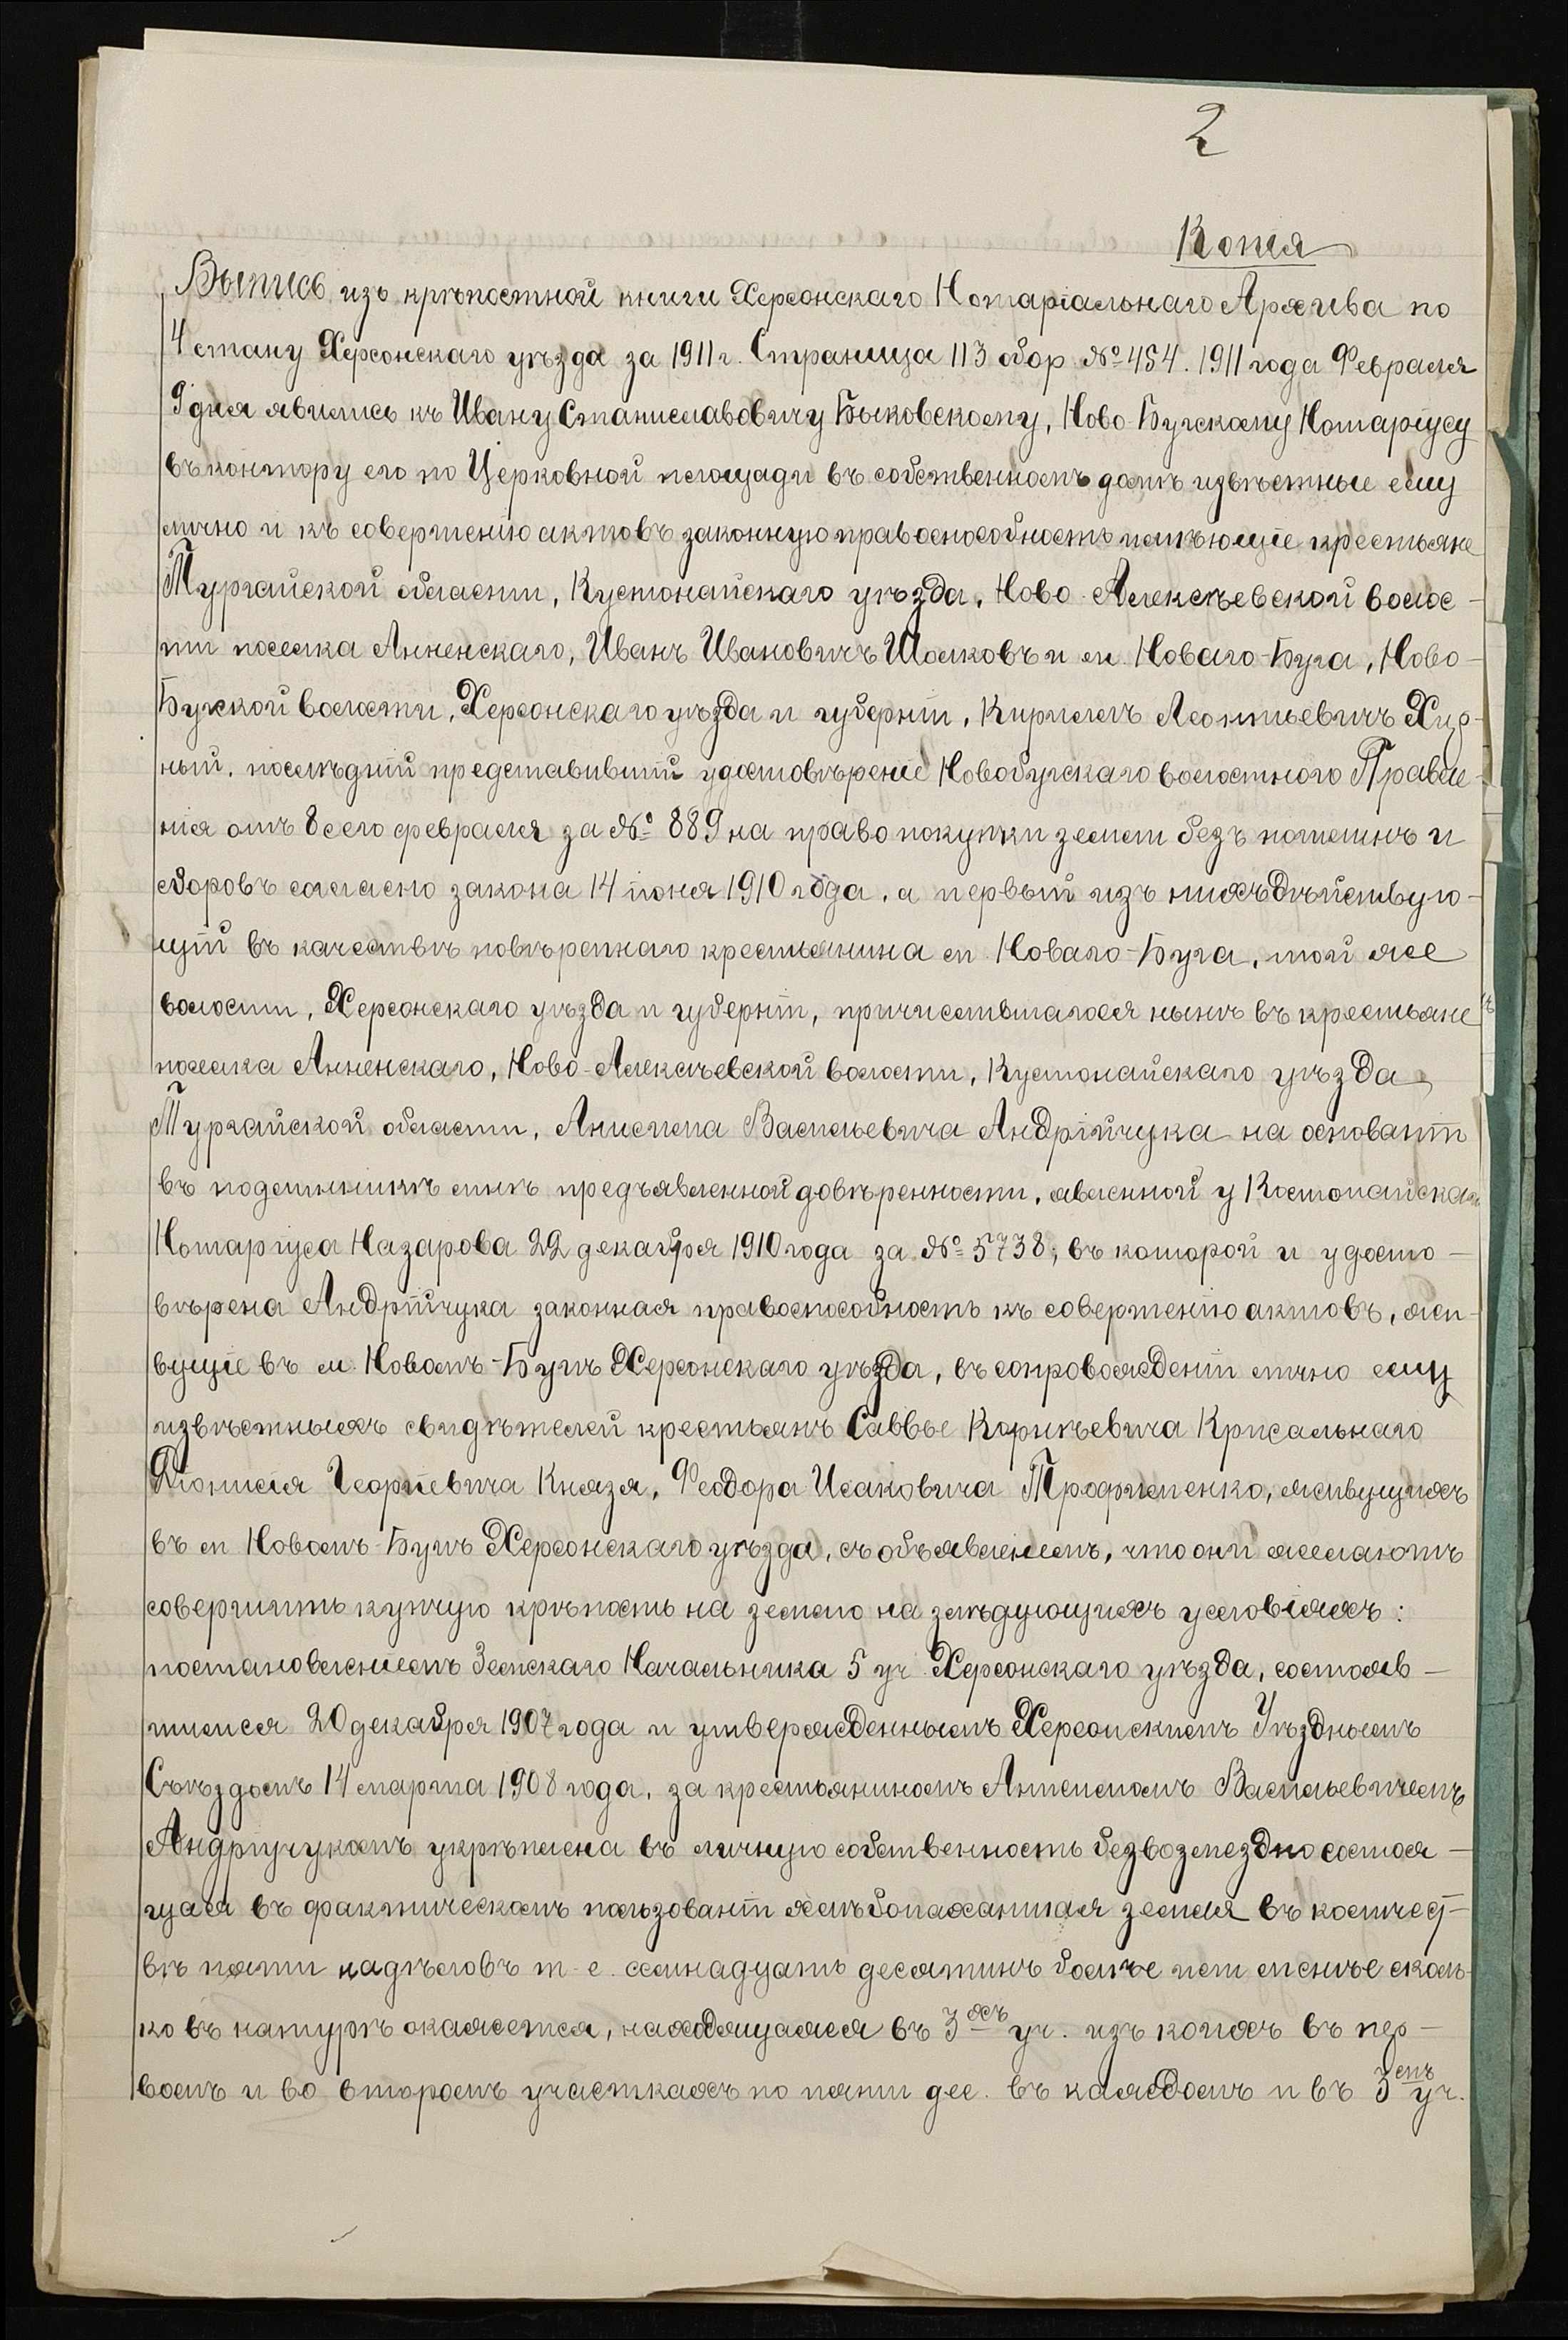 2
Копія
Выпись изъ крѣпостной книги Херсонскаго Нотаріальнаго Архива по
4 стану Херсонскаго уѣзда за 1911 г. Страница 113 обор № 454. 1911 года Февраля
9 дня явились къ Ивану Станиславовичу Быковскому, Ново-Бугскому Нотаріусу
въ контору его по Церковной площади въ собственномъ домѣ извѣстные ему
лично и къ совершенію актовъ законную правоспособность имѣющіе крестьяне
Тургайской области, Кустонайскаго уѣзда, Ново-Алексѣевской волос-
ти поселка Анненскаго, Иванъ Ивановичъ Шолковъ и м. Новаго-Буга, Ново-
Бугской волости, Херсонскаго уѣзда и губерніи, Кириллъ Леонтьевичъ Хир-
ный, послѣдній представившій удостовѣреніе Новобугскаго волостного Правле-
нія отъ 8 сего февраля за № 889 на право покупки земли безъ пошлинъ и
сборовъ согласно закона 14 іюня 1910 года, а первый изъ нихъ дѣйствую-
щій въ качествѣ повѣреннаго крестьянина м. Новаго-Буга, той же
волости, Херсонскаго уѣзда и губерніи, причислившагося нынѣ въ крестьяне
поселка Анненскаго, Ново-Алексѣевской волости, Кустонайскаго уѣзда
Тургайской области, Анисима Васильевича Андрійчука на основаніи
въ подлинникѣ мнѣ предъявленной довѣренности, явленной у Костонайскаго
Нотаріуса Назарова 22 декабря 1910 года за № 5738, въ которой и удосто-
вѣрена Андрійчука законная правоспособность къ совершенію актовъ, жи-
вущіе въ м. Новомъ-Бугѣ Херсонскаго уѣзда, въ сопровожденіи лично ему
извѣстныхъ свидѣтелей крестьянъ Саввы Корнѣевича Крисальнаго
Діонисія Георгіевича Князя, Феодора Исаковича Трофименко, живущихъ
въ м Новомъ-Бугѣ Херсонскаго уѣзда, съ объявленіемъ, что они желаютъ
совершить купчую крѣпость на землю на слѣдующихъ условіяхъ:
постановленіемъ Земскаго Начальника 5 уч. Херсонскаго уѣзда, состояв-
шимся 20 декабря 1907 года и утвержденнымъ Херсонскимъ Уѣзднымъ
Съѣздомъ 14 марта 1908 года, за крестьяниномъ Анисимомъ Васильевичемъ
Андрічукомъ укрѣплена въ личную собственность безвозмездно состоя-
щая въ фактическомъ пользованіи хлѣбопахатная земля въ количест-
вѣ пяти надѣловъ т-е. семнадцать десятинъ болѣе или менѣе сколь-
ко въ натурѣ окажется, находящаяся въ 3хъ уч. изъ коихъ въ пер-
вомъ и во второмъ участкахъ по пяти дес. въ каждомъ и въ 3мъ уч.